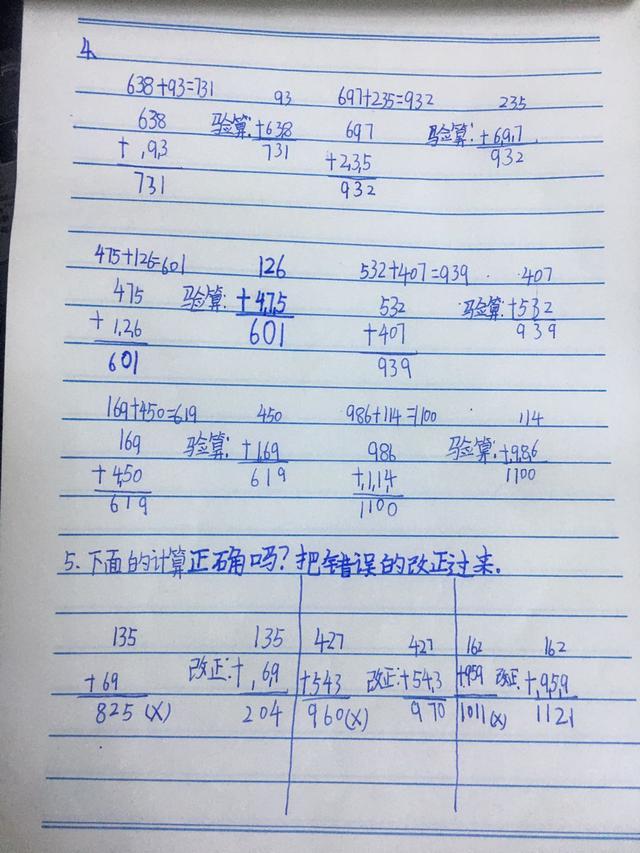 4.
638+93=731 93 697+235=932 235
638 验算:+638 697 验算:+697
+93 731 +235 932
731 932
475+126=601 126 532+407=939 407
475 验算:+475 532 验算:+532
+126 601 +407 939
601 939
169+450=619 450 986+114=1100 114
169 验算:+169 986 验算:+986
+450 619 +114 1100
619 1100
5.下面的计算正确吗?把错误的改正过来.
135 135 427 427 162 162
+69 改正:+69 +543 改正:+543 +959 改正:+959
825(X) 204 960(X) 970 1011(X) 1121